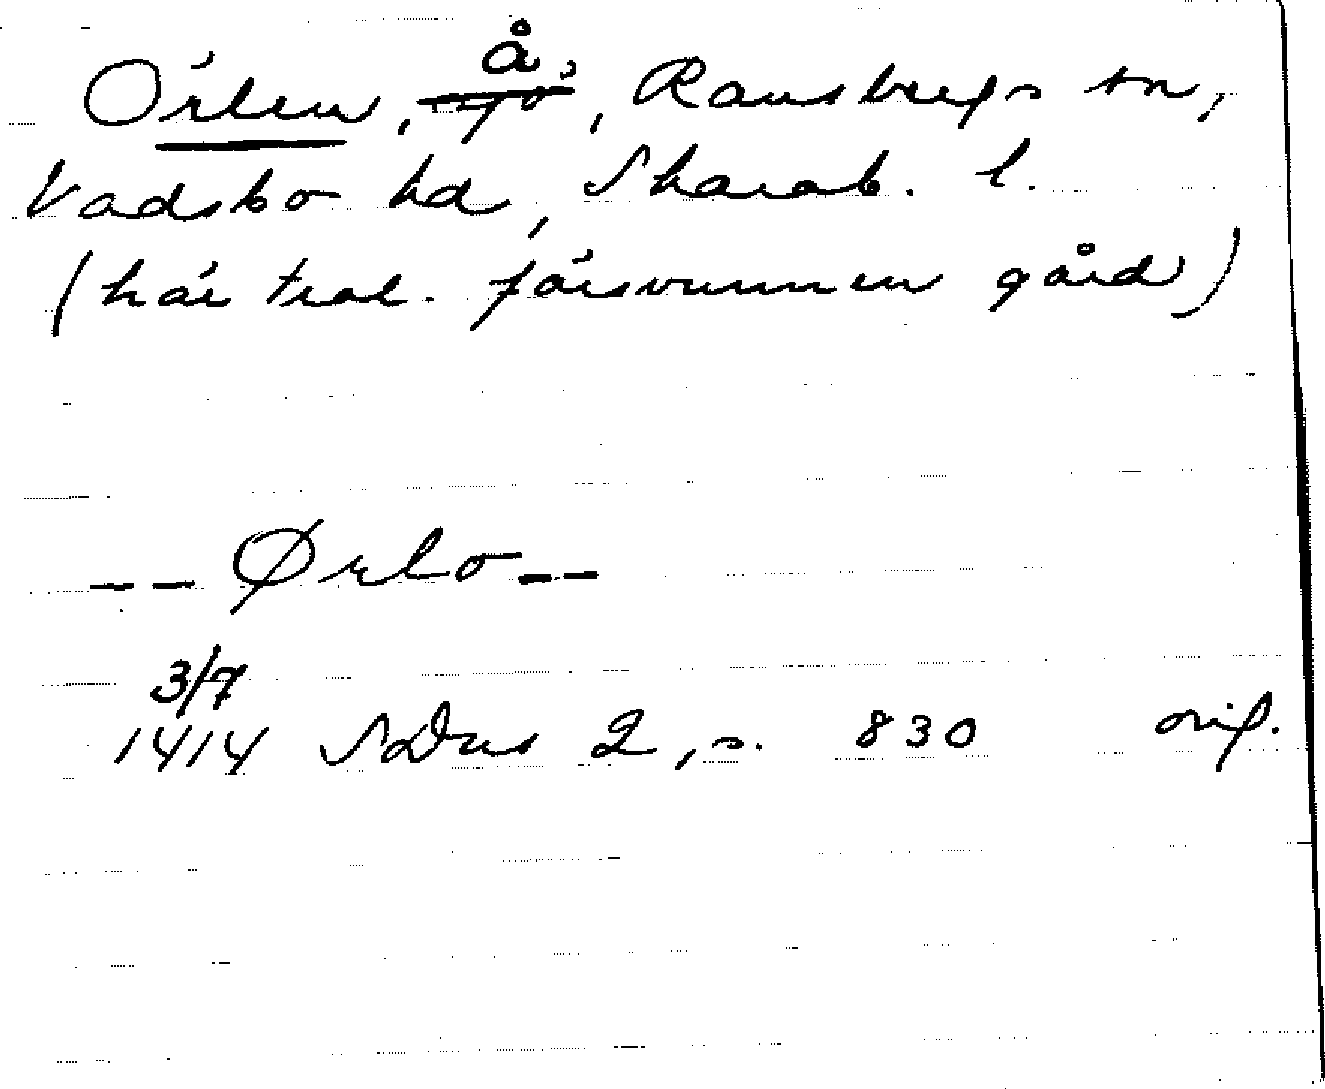 Örlen, å, Ransbergs sn,
Vadsbo hd, Skarab. l.
(här trol. försvunnen gård)
-- Ørlo --
3/7
1414 SDns 2, s. 830 orig.